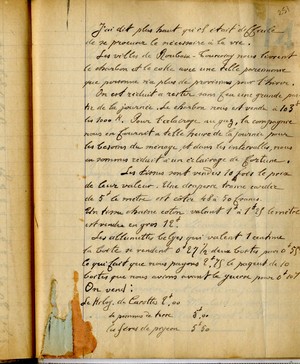 251
J'ai dit plus haut qu'il était difficile
de se procurer le nécessaire à la vie.
Les villes de Roubaix-Tourcoing nous livrent
le charbon et le coke avec une telle parcimonie
que personne n'a plus de provisions pour l'hiver.
On est réduit à rester sans feu une grande par-
tie de la journée. Le charbon nous est vendu à 103f
les 1000 K. Pour l'éclairage au gaz, la compagnie
nous en fournit à telle heure de la journée pour
les besoins du ménage, et dans les intervalles, nous
en sommes réduits à un éclairage de fortune.
Les tissus sont vendus 10 fois le prix
de leur valeur. Une draperie bonne
de 5f le mètre est cotée 40 à 50 francs.
Un tissu chaîne coton valant 1f à 1f25 le mètre
est vendu en gros 12f.
Les allumettes belges qui valent 1 centime
la boîte se vendent 0f27 1/2 deux boîtes pour 0f55
ce qui fait que nous payons 2f75 le paquet de 10
boîtes que nous avions avant la guerre pour 0f10
On vend:
le Kilog. de Carottes 2f,00
de pommes de terre 5f,00
les fèves de pigeon 5f80